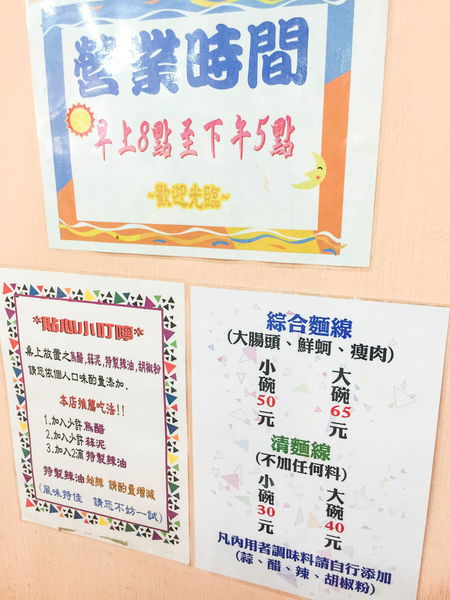 營業時間
早上8點至下午5點
~歡迎光臨~
*貼心小叮嚀*
桌上放置之烏醋,蒜泥,特製辣油,胡椒粉
請您依個人口味酌量添加.
本店推薦吃法!!
1.加入少許烏醋
2.加入少許蒜泥
3.加入2滴 特製辣油
特製辣油 請酌量增減
(風味特佳 請您不妨一試)
綜合麵線
(大腸頭、鮮蚵、瘦肉)
小碗50元 大碗65元
清麵線
(不加任何料)
小碗30元 大碗40元
凡內用者調味料請自行添加
(蒜、醋、辣、胡椒粉)